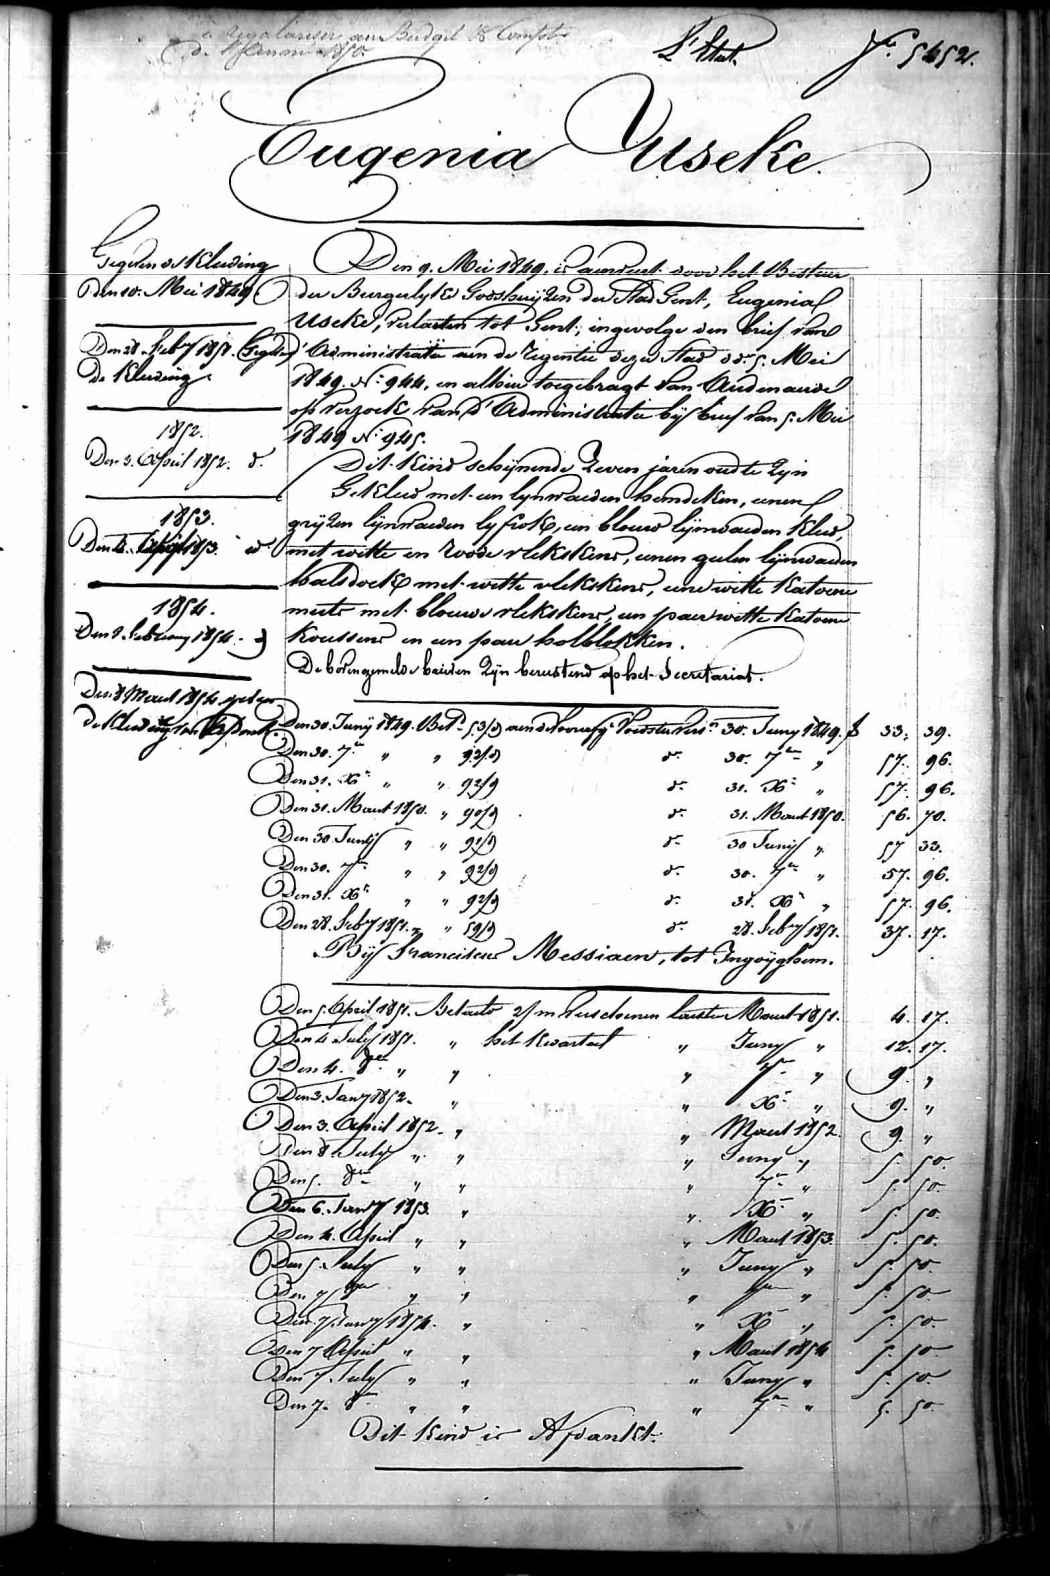 L' Etat.
N.° 5452.
Eugenia Useke.
Gegeven de Kleeding
Den 10. Mei 1849.
Den 28. Feb.y 1851. Gegeven
de Kleeding.
1852.
Den 3. April 1852. d.°
1853.
Den 4. April 1853. d.°
1854.
Den 8 Maert 1854 geven
de Kleeding
Den 9. Mei 1849. is aenveert door het Bestuer
der Burgerlyke Godshuizen der Stad Gent, Eugenia
Useke, verlaeten tot Gent, ingevolge den brief van
d'Administratie aen de Regentie dezer Stad dd. 5. Mei
1849. N.° 944, en alhier toegebragt van Audenaerde
op verzoek van d'Administratie bij brief van 5. Mei
1849 N.° 945.
Dit Kind schijnende Zeven jaren oud te Zyn
Gekleed met een lynwaeden hemdeken, eenen
gryzen lijnwaeden lyfrok, een blouw lijnwaeden Kleed,
met witte en roode vlekskens, eenen geelen lijnwaeden
halsdoek met witte vlekskens, eene witte Katoene
muts met blouwe vlekskens, een paer witte Katoene
Koussens en een paer holblokken.
De bovengemelde Zyn berustend op het Secretariat.
Den 30. Junij 1849. Bet. 53/d aen de Voedster vers.n 30. Juny 1849. f 33. 39.
Den 30. 7.er " " 92/d d.° 30. 7.er " 57. 96.
Den 31. X.r " " 92/d d.° 31. X.r " 57. 96.
Den 31. Maert 1850. " 90/d d.° 31. Maert 1850. 56. 70.
Den 30 Junij " " 91/d d.° 30 Junij " 57 33.
Den 30. 7.er " " 92/d d.° 30. 7.er " 57. 96.
Den 31. X.r " " 92/d d.° 31. X.r " 57. 96.
Den 28. Feb.y 1851. " " 59/d d.° 28. Feb.y 1851. 37. 17.
Bij Franciscus Messiaen, tot Ingoyghem.
Den 5. April 1851. Betaeld 2/m verschenen laeste Maert 1851. 4. 17.
Den 4 July 1851. " het Kwartael " Juny " 12. 17.
Den 4. 8.er " " " 7.er " 9. "
Den 3. Jan.y 1852. " " X.r " 9. "
Den 3. April 1852. " " Maert 1852. 9. "
Den 8 July " " " Juny " 5. 50.
Den 5. 8.er " " " 7.er " 5. 50.
Den 6. Jan.y 1853. " " X.r " 5. 50.
Den 4. April " " " Maert 1853. 5. 50.
Den 5. July " " " Juny " 5. 50
Den 7 8.er " " " 7.er " 5. 50
Den 7. Jan.y 1854. " " X.r " 5. 50.
Den 7 April " " " Maert 1854 5. 50
Den 7 July " " " Juny " 5. 50
Den 7. 8.er " " " 7.er " 5. 50
Dit Kind is Afdankt.